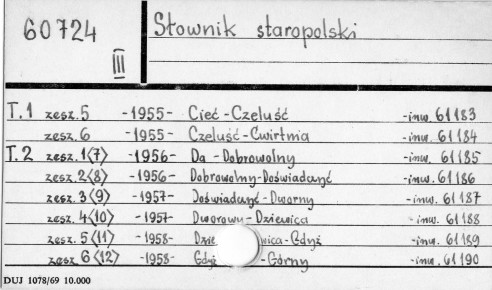 60724 III
Słownik staropolski
T.1 zesz. 5 -1955- Cieć - Czeluść -inw. 61183
zesz. 6 -1955- Czeluść - Ćwirtnia -inw. 61184
T.2 zesz. 1<7> -1956- Da - Dobrowolny -inw. 61185
zesz. 2<8> -1956- Dobrowolny - Doświadczyć -inw. 61186
zesz. 3<9> -1957- Doświadczyć - Dworny -inw. 61187
zesz. 4<10> -1957- Dworowy - Dziewica -inw. 61188
zesz. 5<11> -1958- Dzie wica - Gdyż -inw. 61189
zesz. 6<12> -1958- Gdyż - Górny -inw. 61190
DUJ 1078/69 10.000